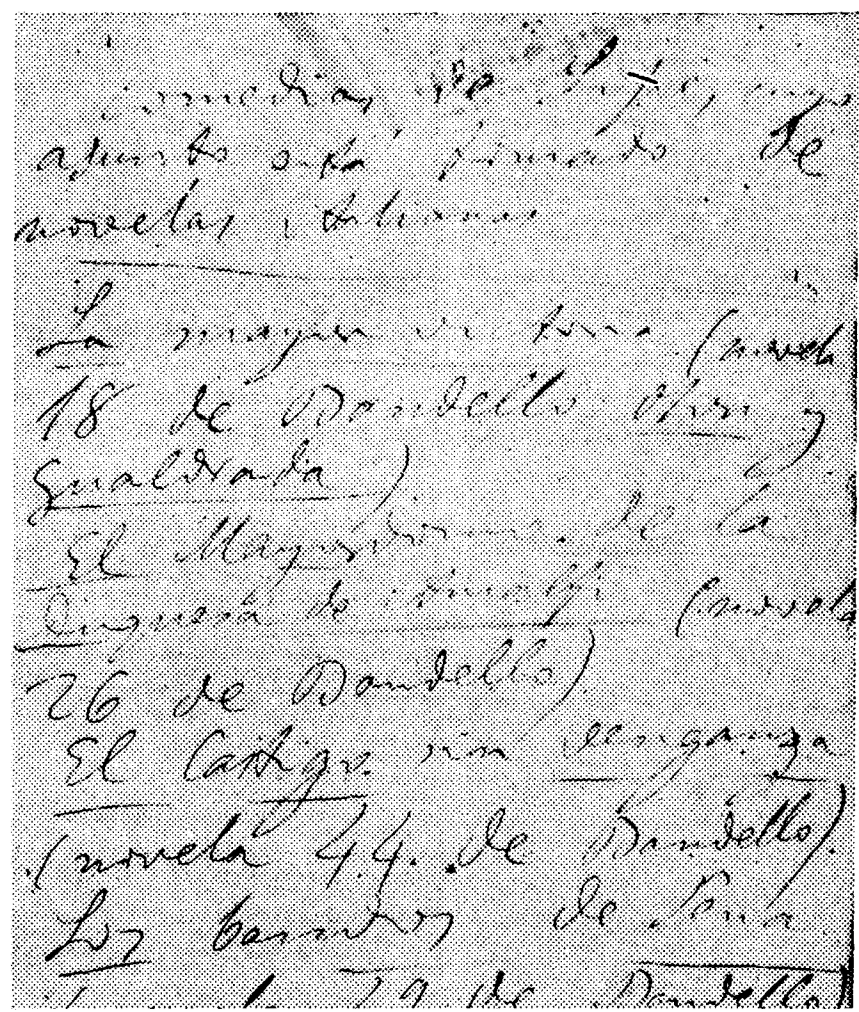 Comedias de Lope, cuyo
asunto está tomado de
novelas italianas
La mayor victoria (novela
18 de Bandello Oton y
Gualdrada).
El Mayordomo de la
Duquesa de Amalfi (novela
26 de Bandello).
El Castigo sin venganza
(novela 44. de Bandello).
Los bandos de Sena
(novela de Bandello)